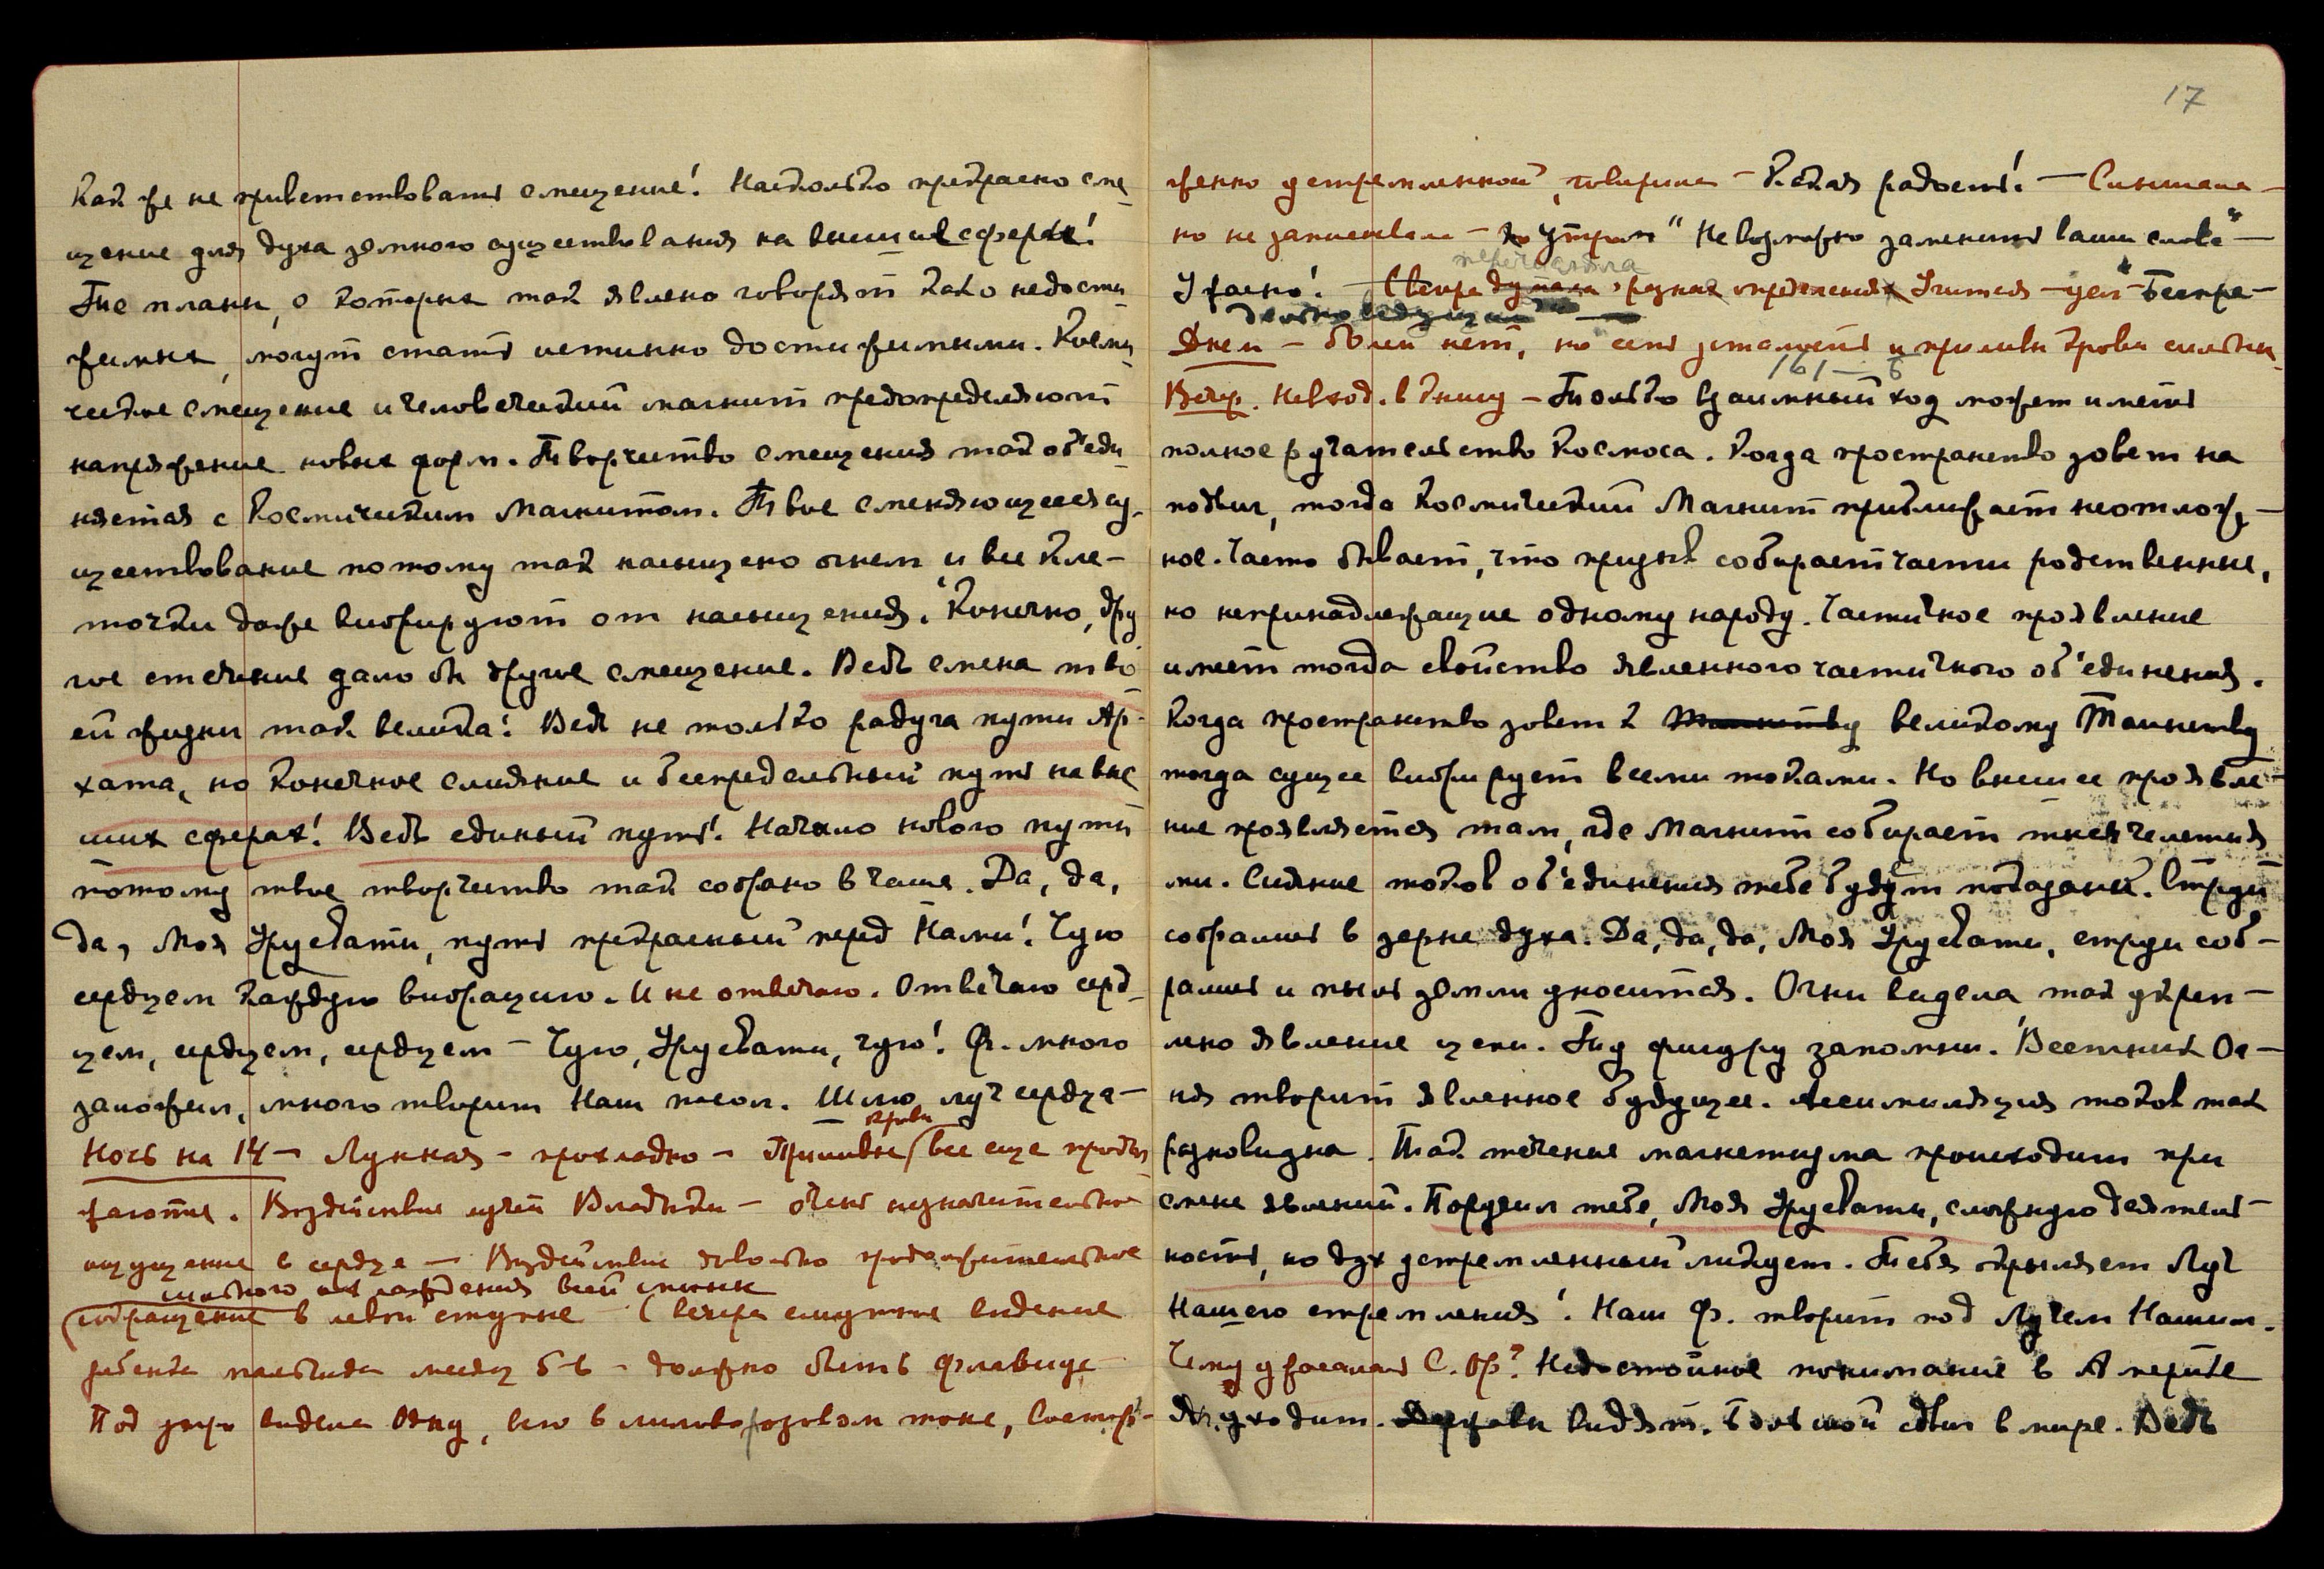 Как же не приветствовать смещение! Настолько прекрасно сме-
щение для духа земного существования на высших сферах!
Те планы, о которых так явлено говорят как о недости-
жимых, могут стать истинно достижимыми. Косми-
ческое смещение и человеческий магнит предопределяют
напряжение новых форм. Творчество смещения так об'еди-
няется с Космическим Магнитом. Твое сменяющееся су-
ществование потому так насыщено огнем и все кле-
точки даже вибрируют от насыщения. Конечно, дру
гое стечение дало бы другое смещение. Ведь смена тво-
ей жизни так велика! Ведь не только радуга пути Ар-
хата, но конечное слияние и беспредельный путь на выс
ших сферах! Ведь единый путь! Начало нового пути
потому твое творчество так собрано в чаше. Да, да,
да, Моя Урусвати, путь прекрасный перед Нами! Чую
сердцем каждую вибрацию. И не отвечаю. Отвечаю серд-
цем, сердцем, сердцем — Чую, Урусвати, чую! Ф. много
заложил, много творит Наш посол. Шлю луч сердца —
Ночь на 14 — Лунная — прохладно — Приливы крови все еще продол
жаются. Воздействие лучей Владыки — очень незначительное
ощущение в сердце — Воздействие довольно продолжительное
сокращение в левой ступне С вечера смутное видение
ребенка мальчика между 5-6 — должно быть Флавица
Под утро видела Одну, всю в лилово розовом тоне, восторж-
17
женно устремленной, говорила — Какая радость! — Слышала —
но не записывала — Утром "Не возможно заменить ваши слова" —
Ужасно! — С вечера перечитала разная определения Учителя —
Днем — болей нет, но есть усталость и приливы крови сильны
161 — 6
Вечер. Не вход. в книгу — Только взаимный ход может иметь
полное ручательство Космоса. Когда пространство зовет на
подвиг, тогда Космический Магнит приближает неотлож-
ное. Часто бывает, что призыв собирает части родственные,
но непринадлежащие одному народу. Частичное проявление
имеет тогда свойство явленного частичного об'единения.
Когда пространство зовет к великому Таинству
тогда сущее вибрирует всеми токами. Но высшее проявле-
ние проявляется там, где Магнит собирает тысячелетия
ми. Сияние токов об'единения тебе будут показаны. Струи
собрались в зерне духа. Да, да, да, Моя Урусвати, струи соб-
рались и пыль земли уносится. Огни видела, так укреп-
лено явление цепи. Ту фигуру запомни. Вестник Ог-
ня творит явленное будущее. Ассимиляция токов так
разновидна. Так течение магнетизма происходит при
смене явлений. Поручил тебе, Моя Урусвати, сложную деятель-
ность, но дух устремленный ликует. Тебя окрыляет Луч
Нашего стремления! Наш Ф. творит под Лучем Нашим.
Чему ужасалась С. Оф? Недостойное понимание в Америке
уходит. видят. Большой сдвиг в мире. Ведь